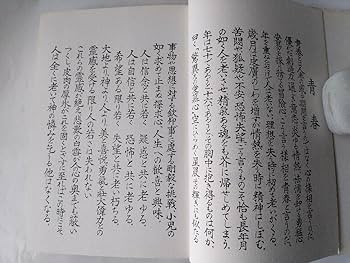 青春
青春とは人生の或る期間を言うのではなく心の様相を言うのだ
年を重ねただけで人は老いない。理想を失う時に初めて老いがくる。
歳月は皮膚のしわを増すが情熱を失う時に精神はしぼむ。
苦悶や狐疑や不安、恐怖、失望、こう言うものこそ恰も長年月
の如く人を老いさせ、精気ある魂をも芥に帰せしめてしまう。
年は七十であろうと十六であろうと、その胸中に抱き得るものは何か。
曰く驚異への愛慕心、空にきらめく星辰、その輝きにも似たる
事物や思想に対する欽仰、事に處する剛毅な挑戦、小児の
如く求めて止まぬ探求心、人生への歓喜と興味。
人は信念と共に若く 疑惑と共に老ゆる、
人は自信と共に若く 恐怖と共に老ゆる、
希望ある限り若く 失望と共に老い朽ちる。
大地より、神より、人より、美と喜悦、勇気と壮大、偉力との
霊感を受ける限り人の若さは失われない
これらの霊感が絶え、悲歎の白雪が人の心の奥までも蔽い
つくし、皮肉の厚氷がこれを固くとざすに至ればこの時にこそ
人は全くに老いて神の憐みを乞うる他はなくなる。